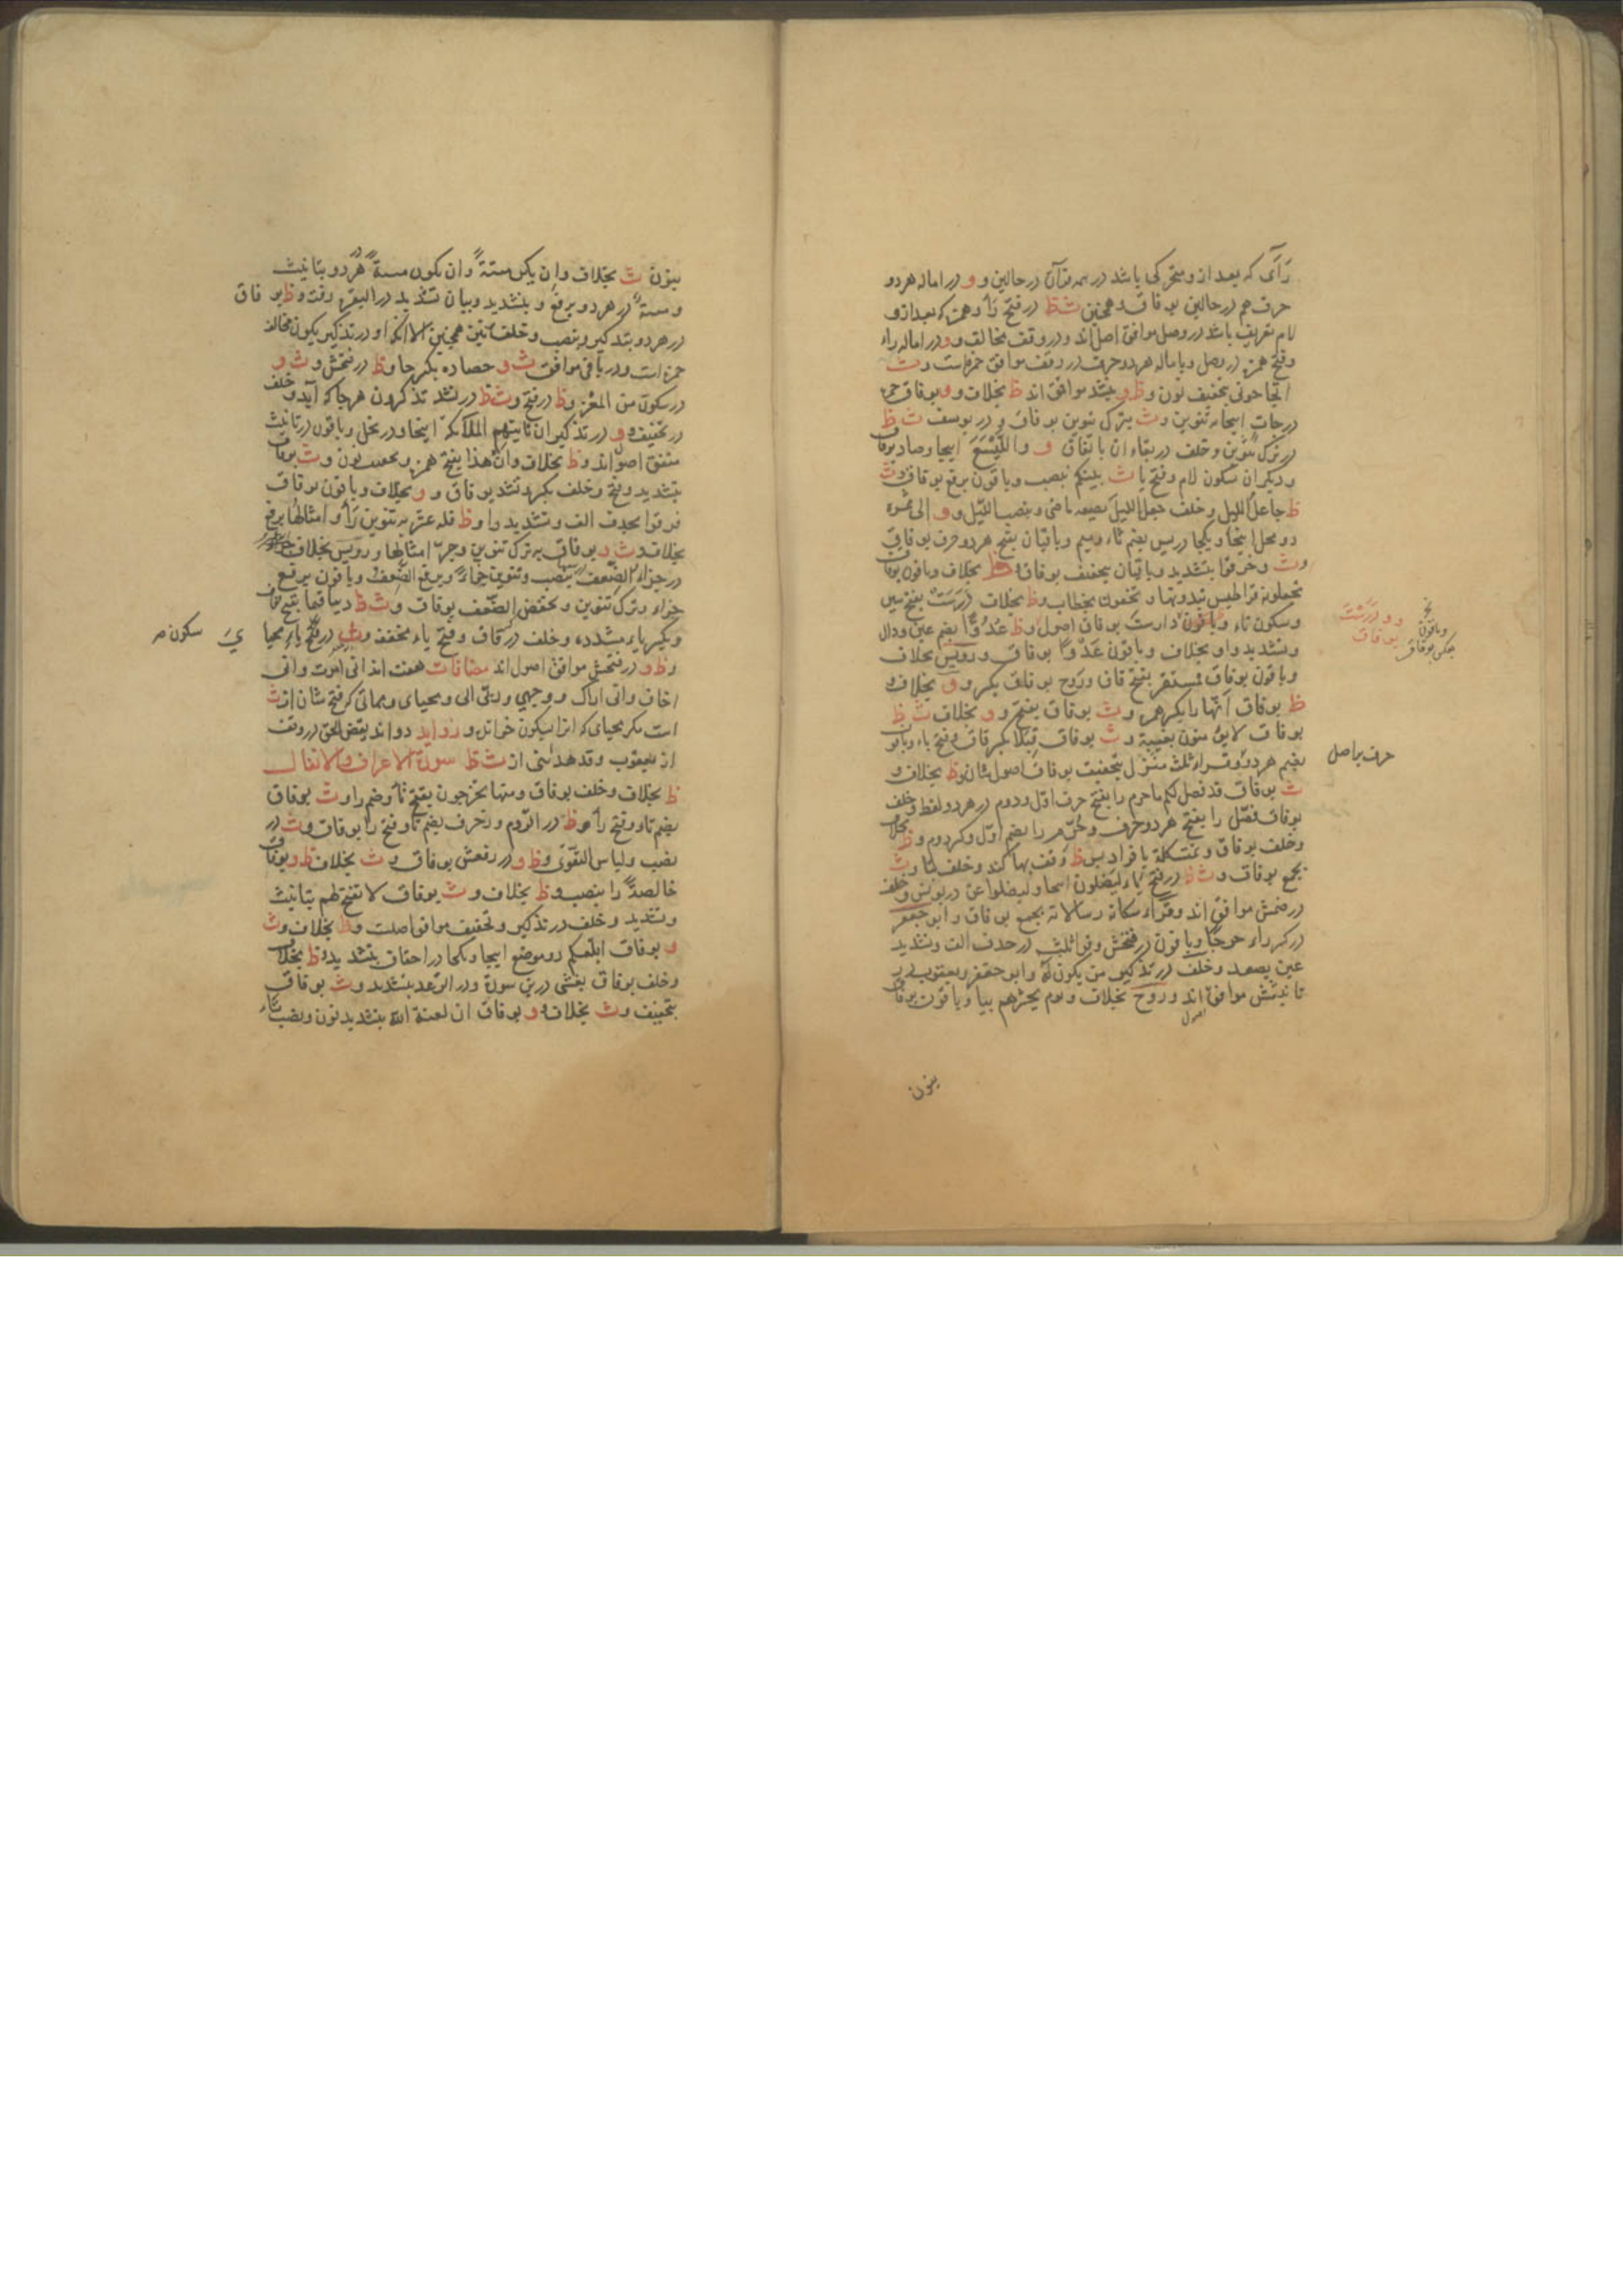 رَآی که بعد ازو متحرکی باشد در همه قرآن در حالین و و در اماله هر دو
حرف هم در حالین بوفاق و همچنین ث ظ در فتح را و همزه که بعد ازو
لام تعریف باشد در وصل موافق اصل اند و در وقف مخالف و و در اماله راء
وفتح همزه در وصل و باماله هر دو حرف در وقف موافق حمزه است و ث
اتحاجونی بتخفیف نون و ظ و بتشدید موافق اند ظ بخلاف و و بوفاق حمزه
درجات اینجا به تنوین و ث بترک تنوین بوفاق و در یوسف ث ظ
در ترک تنوین و خلف در بقاء ان باتفاق و واللَّیْسَعَ اینجا و صاد بوفاق
و دیگران بسکون لام و فتح یا ث بینکم بنصب و باقون برفع بوفاق و ث
ظ جاعل اللیل و خلف جعل اللیل بصیغه ماضی و بنصب اللیل و و الی ثمره
دو محل اینجا و یکجا در یس بضم ثاء و میم و باقیان بفتح هر دو حرف بوفاق
و ث وخرقوا بتشدید و باقیان بتخفیف بوفاق ظ بخلاف و باقون بوفاق
تجعلونه قراطیس تبدونها و تخفون بخطاب و ظ بخلاف دَرَسَتْ بفتح سین
و سکون تاء و باقون دارست بوفاق اصول و ظ عُدُوًّا بضم عین و دال
و بتشدید واو بخلاف و باقون عَدْوًا بوفاق و رویس بخلاف
و باقون بوفاق فمستقر بفتح قاف و روح بوفاق بکسر و و بخلاف و
ظ بوفاق انها را بکسر همزه و ث بوفاق بفتح و و بخلاف ث ظ
بوفاق لایؤمنون بغیبة و ث بوفاق قبلا بکسر قاف و فتح باء و باقون
بضم هر دو و قراء ثلث منزل بتخفیف بوفاق اصول شان و ظ بخلاف و
ث بوفاق قد فصل لکم ما حرم را بفتح حرف اول و دوم در هر دو لفظ و خلف
بوفاق فصّل را بفتح هر دو حرف و حُرّم را بضم اول و کسر دوم و ظ بخلاف
و خلف بوفاق و تمت کلمة بافراد پس ظ وقف بها کند و خلف بتا و ث
بجمع بوفاق و ث ظ در فتح یاء لیضلون اینجا و لیضلوا عن در یونس و خلف
در ضمش موافق اند و قراء مکانة رسالاته بجمع بوفاق و ابو جعفر
در کسر راء حرجًا و باقون در فتحش و قراء ثلث در حذف الف و بتشدید
عین یصعد و خلف در تذکیر من یکون له و ابو جعفر و یعقوب در
تانیثش موافق اصول اند و روح بخلاف و یوم یحشرهم بیا و باقون بوفاق
بنون
و و دَرَسْتَ
بوفاق
وباقون
بعکس بوفاق
حرف بر اصل
بنون ث بخلاف وان یکن میتةٌ وان یکون میتةٌ هر دو بتانیث
و میتةٌ در هر دو برفع و بتشدید و بیان تشدید در البقره رفت و ظ بوفاق
در هر دو بتذکیر و بنصب و خلف نیز همچنین الا آنکه او در تذکیر یکون مخالف
حمزه است و در باقی موافق ث و حصاده بکسر حا و ظ در فتحش و ث و
در سکون من المعز و ظ در فتح و ث ظ در تشدید تذکرون هر جا که آید و خلف
در تخفیف و و در تذکیر ان تاتیهم الملائکة اینجا و در نحل و باقون در تانیث
متفق اصول اند و ظ بخلاف وان هذا بفتح همزه و بتخفیف نون و ث بوفاق
بتشدید و فتح و خلف بکسر و تشدید بوفاق و و بخلاف و باقون بوفاق
فرقوا بحذف الف و بتشدید را و ظ فله عشر به تنوین رأ و امثالها برفع
بخلاف و ث و بوفاق به ترک تنوین و جر امثالها و رویس بخلاف
در جزاء الضعف بنصب و تنوین جزاءً و برفع الضعف و باقون برفع
جزاء و ترک تنوین و بخفض الضعف بوفاق و ث ظ دینا قیما بفتح قاف
و بکسر یاء مشدده و خلف در قاف و فتح یاء مخفف و ث در فتح یاء محیا
و ظ و در فتحش موافق اصول اند مضافات هشت اند انی امرت وانی
اخاف وانی اراک و وجهی و ربی الی و محیای و مماتی که فتح شان از ث
است مگر محیای که انرا بسکون خواند و زواید دو اند یقض الحق در وقف
از یعقوب و قد هدانی از ث ظ سورة الاعراف والانفال
ظ بخلاف و خلف بوفاق و منها تخرجون بفتح تا و ضم را و ث بوفاق
بضم تا و فتح را و ظ در الروم و زخرف بضم تا و فتح را بوفاق و ث در
نصب و لباس التقوی و ظ و در رفعش بوفاق و ث بخلاف ظ و بوفاق
خالصةً را بنصب و ظ بخلاف و ث بوفاق لا تفتح لهم بتانیث
و بتشدید و خلف در تذکیر و تخفیف موافق اصلست و ظ بخلاف و ث
و بوفاق ابلغکم دو موضع اینجا و یکجا در احقاف بتشدید و ظ بخلاف
و خلف بوفاق یغشی درین سورة و در الرعد بتشدید و ث بوفاق
بتخفیف و ث بخلاف و بوفاق ان لعنة الله بتشدید نون و بنصب تاء
یَ
سکون